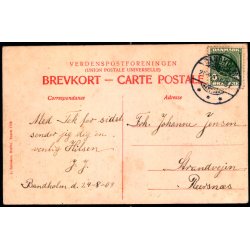 VERDENSPOSTFORENINGEN
(UNION POSTALE UNIVERSELLE)
BREVKORT - CARTE POSTALE
Correspondance
Adresse
DANMARK
5
Med Tak for sidst
sender jeg dig en
venlig Hilsen
J. J.
Bandholm d. 29-8-09
Frk. Johanne Jensen
Strandvejen
Refsnæs